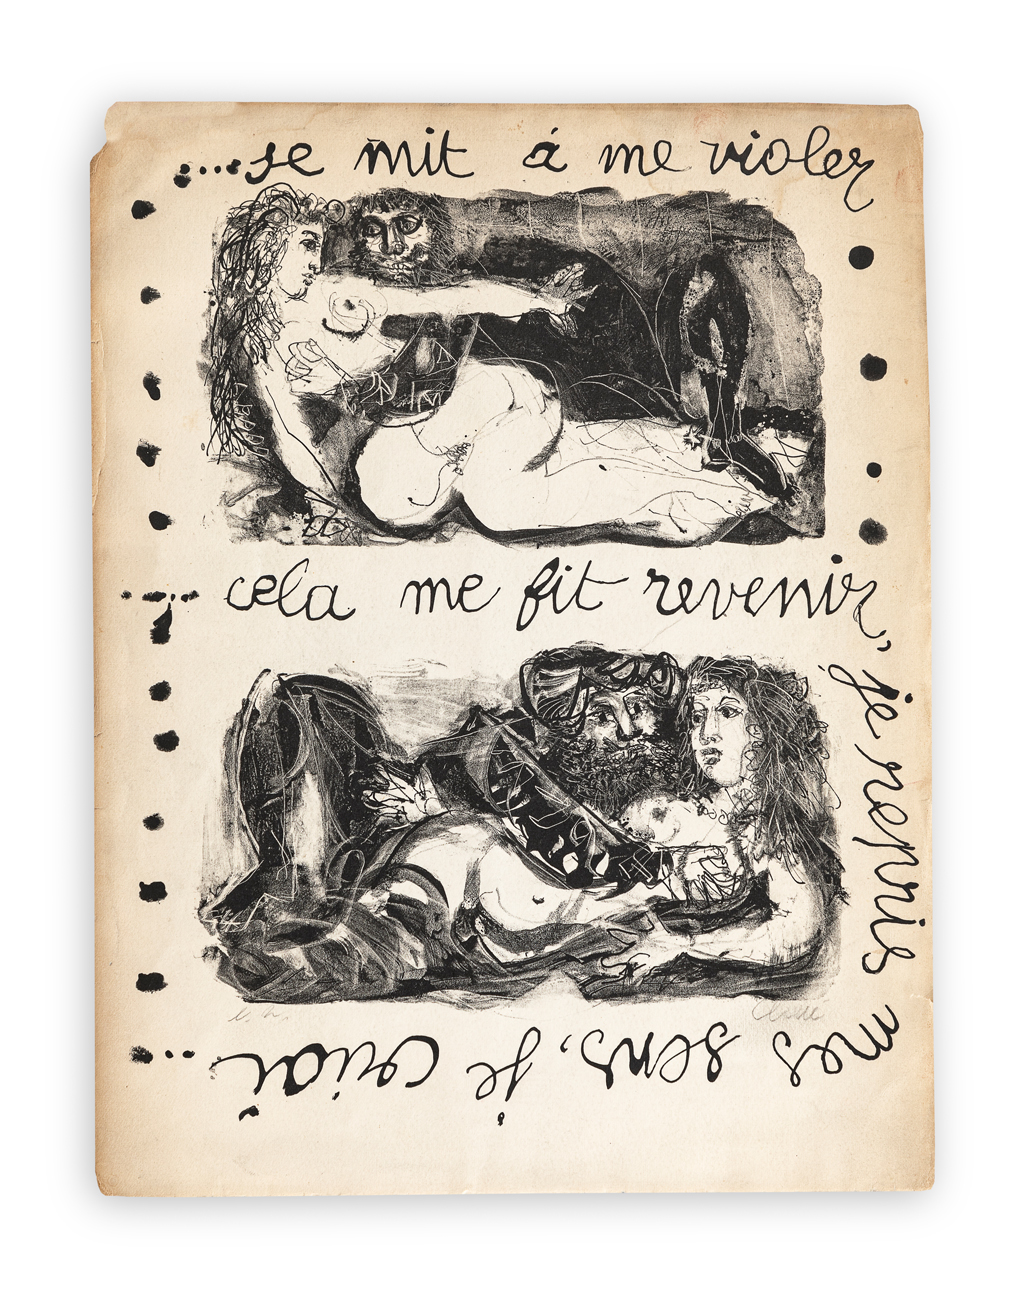 ....se mit á me violer
cela me fit revenir,
je repris
mes sens, je criai...